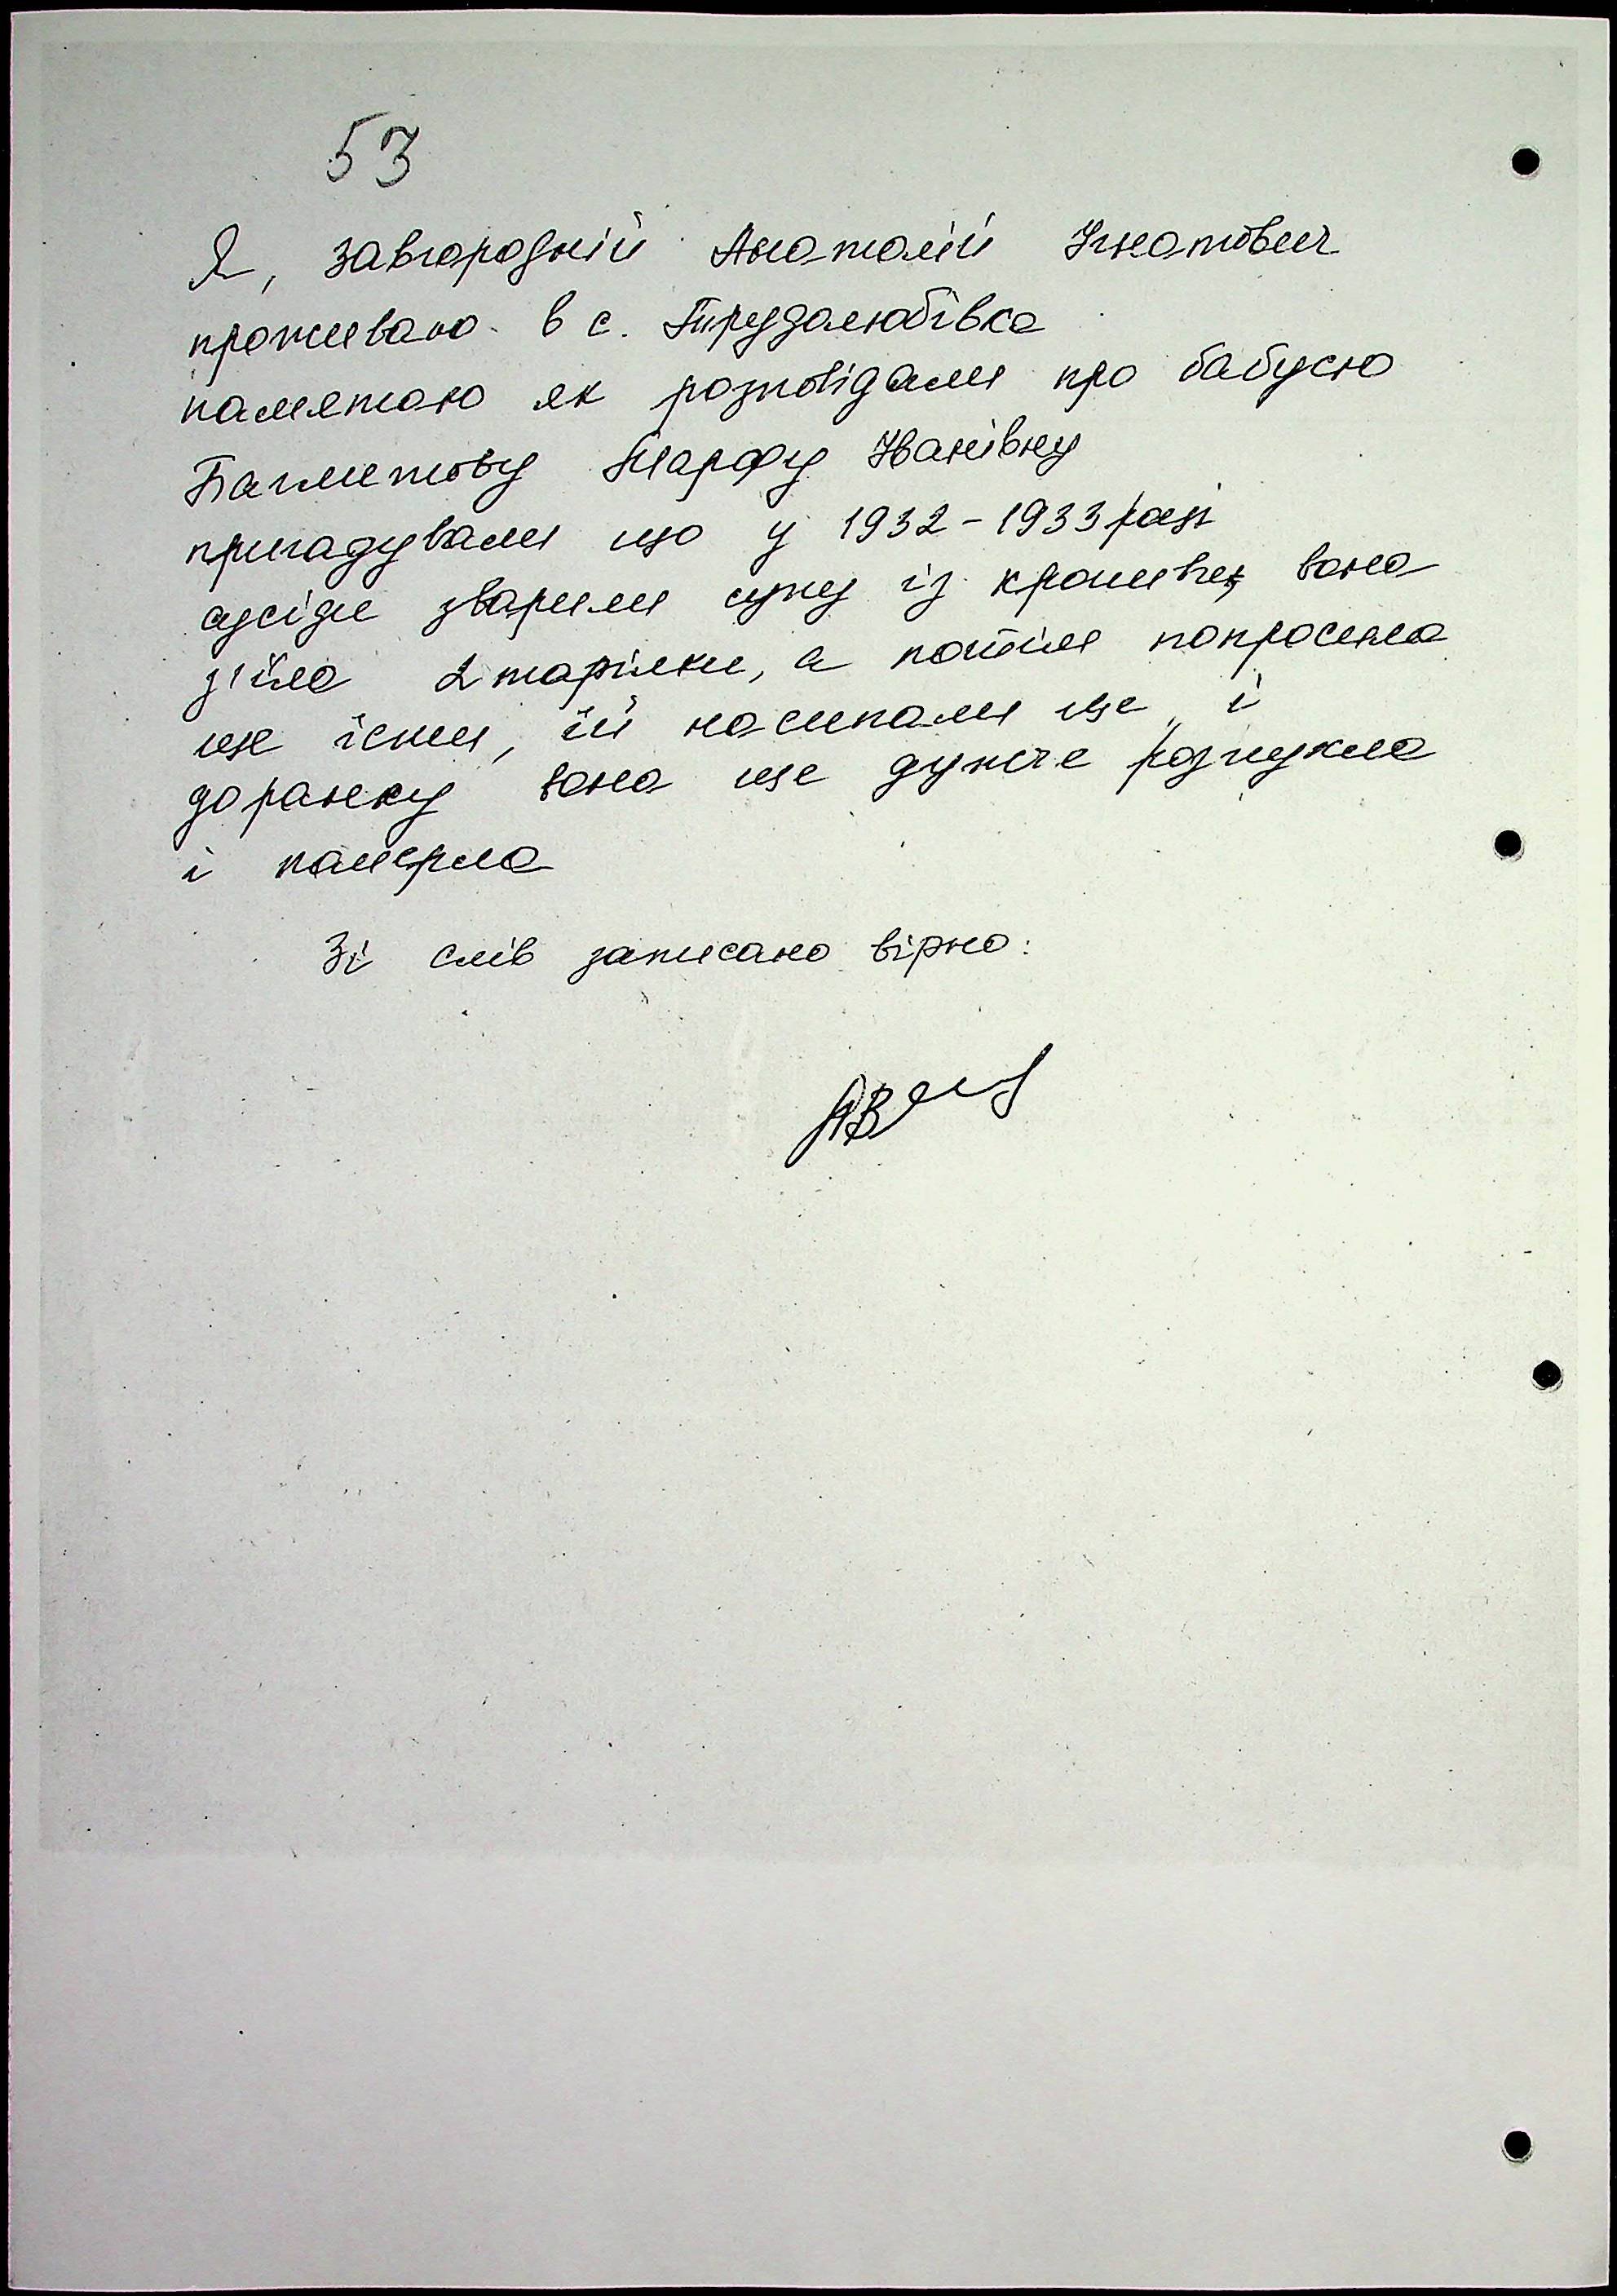 53
Я, Завгородній Анатолій Ігнатович
проживаю в с. Трудолюбівка
памятаю як розповідали про бабусю
Марфу Іванівну
пригадували що у 1932-1933 році
сусіди зварили супу із кропиви, вона
з'їла 2 тарілки, а потім попросила
ще їсти, їй насипали ще, і
до ранку вона ще дужче розпухла
і памерла
Зі слів записано вірно: